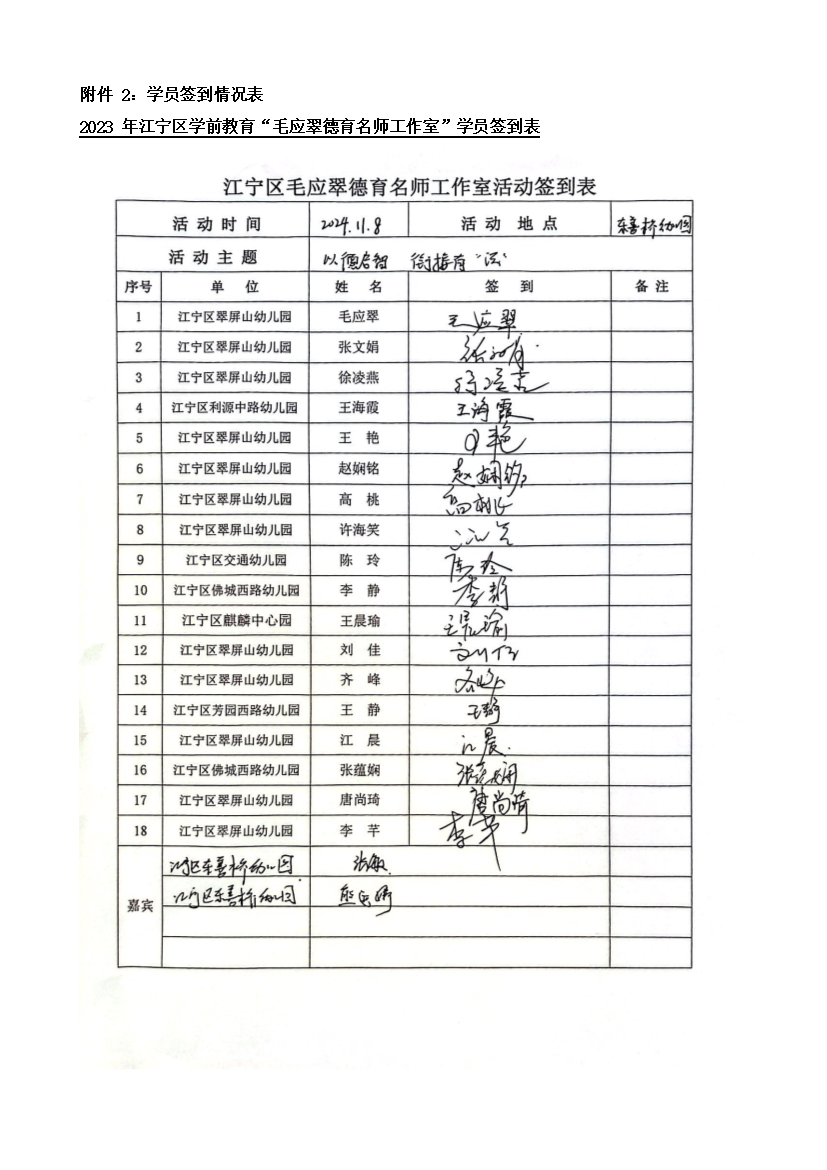 附件 2：学员签到情况表
2023 年江宁区学前教育“毛应翠德育名师工作室”学员签到表
江宁区毛应翠德育名师工作室活动签到表
活动时间 2024.11.8 活动 地点 东善桥幼儿园
活动主题 以德启智 衔接有“法”
序号 单 位 姓 名 签 到 备注
1 江宁区翠屏山幼儿园 毛应翠 毛应翠
2 江宁区翠屏山幼儿园 张文娟 张文娟
3 江宁区翠屏山幼儿园 徐凌燕 徐凌燕
4 江宁区利源中路幼儿园 王海霞 王海霞
5 江宁区翠屏山幼儿园 王 艳 王艳
6 江宁区翠屏山幼儿园 赵娴铭 赵娴铭
7 江宁区翠屏山幼儿园 高 桃 高桃
8 江宁区翠屏山幼儿园 许海笑
9 江宁区交通幼儿园 陈 玲 陈玲
10 江宁区佛城西路幼儿园 李 静 李静
11 江宁区麒麟中心园 王晨瑜 王晨瑜
12 江宁区翠屏山幼儿园 刘 佳 刘佳
13 江宁区翠屏山幼儿园 齐 峰 齐峰
14 江宁区芳园西路幼儿园 王 静 王静
15 江宁区翠屏山幼儿园 江 晨 江晨
16 江宁区佛城西路幼儿园 张蕴娴 张蕴娴
17 江宁区翠屏山幼儿园 唐尚琦 唐尚琦
18 江宁区翠屏山幼儿园 李 芊 李芊
嘉宾
江宁区东善桥幼儿园 张敏
江宁区东善桥幼儿园